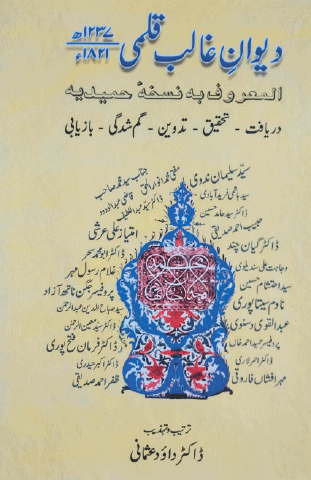 دیوانِ غالب قلمی ۱۲۳۷ھ ۱۸۲۱ء
المعروف بہ نسخۂ حمیدیہ
دریافت - تحقیق - تدوین - گم شدگی - بازیابی
سیّد سلیمان ندوی
مفتی محمد انوار الحق
سید ہاشمی فرید آبادی
ڈاکٹر سید عبداللطیف
قاضی عبدالودود
ڈاکٹر سید حامد حسین
حبیب احمد صدیقی
امتیاز علی عرشی
ڈاکٹر گیان چند
ڈاکٹر ابو محمد سحر
وجاہت علی سندیلوی
غلام رسول مہر
سید احتشام حسین
پروفیسر جگن ناتھ آزاد
نادم سیتاپوری
سید صباح الدین عبدالرحمن
عبدالقوی دسنوی
ڈاکٹر سید معین الرحمن
پروفیسر حمید احمد خاں
ڈاکٹر فرمان فتح پوری
ڈاکٹر اکبر حیدری
مہر افشاں فاروقی
ظفر احمد صدیقی
ترتیب و تہذیب
ڈاکٹر داؤد عثمانی